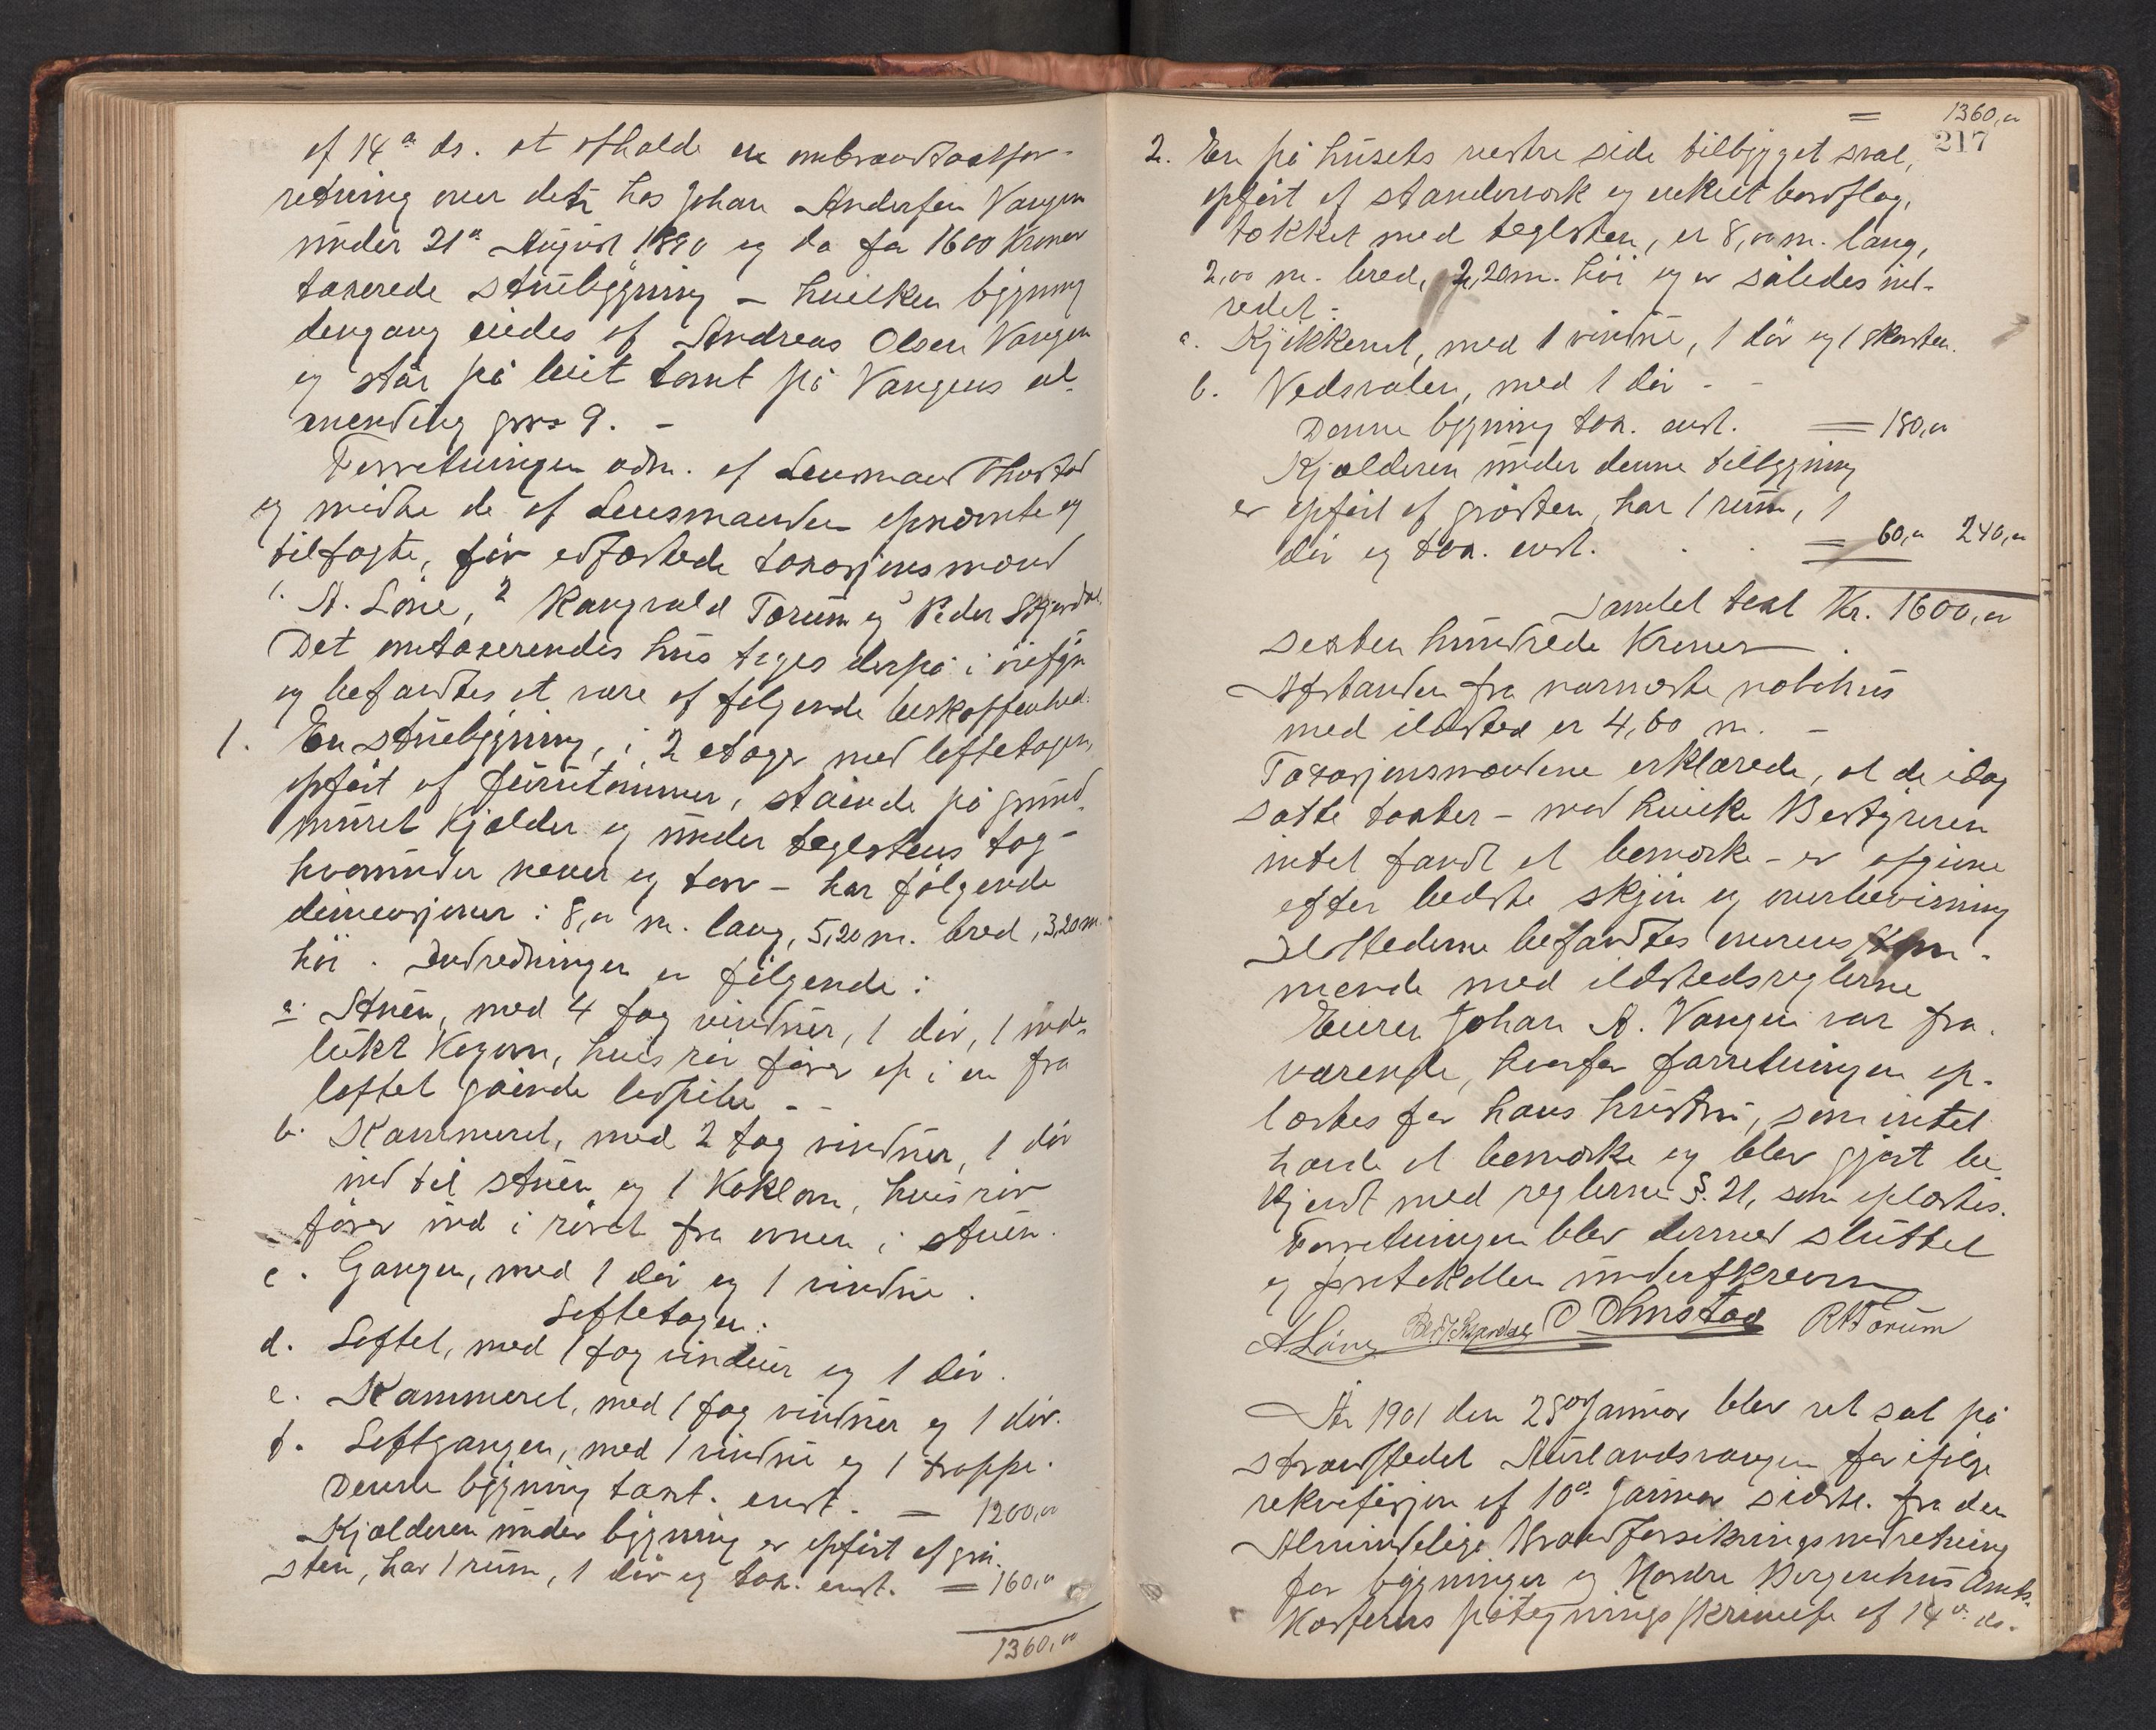 af 14de ds. at afholde en ombrandtaxtfor-
retning over den hos Johan Andersen Vangen
under 21de August 1890 og da for 1600 Kroner
taxerede stuebygning – hvilken bygning
dengang eiedes af Andreas Olsen Vangen
og står på leiet tomt på Vangens al-
mending gnr 9. –
Forretningen adm. af Lensmand Ohnstad
og mødte de af Lensmanden opnævnte og
tilsagte, før edfæstede taxasjonsmænd
1. A. Löne, 2 Rangvald Torum og 3 Peder Skjerdal.
Det omtaxerendes hus toges derpå i øiesyn
og befandtes at være af følgende beskaffenhed:
1. En stuebygning, i 2 etager med loftetagen,
opført af furutømmer, stående på grund-
muret Kjælder og under teglstens tag –
hvorunder næver og torv – har følgende
dimensjoner: 8,00 m. lang, 5,20 m. bred, 3,20 m.
høi. Indredningen er følgende:
a. Stuen, med 4 fag vinduer, 1 dör, 1 inde-
lukt Kogovn, hvis rör förer op i en fra
loftet gående
b. Kammeret, med 2 fag vinduer, 1 dör
ind til stuen og 1 Kakkelovn, hvis rör
förer ind i röret fra ovnen i stuen.
c. Gangen, med 1 dör og 1 vindu.
Loftetagen:
d. Loftet, med 1 fag vinduer og 1 dör.
e. Kammeret, med 1 fag vinduer og 1 dör.
f. Loftgangen, med 1 vindu og 1 trappe.
Denne bygning taxt. anst. = 1200,00
Kjælderen under bygning er opført af grå-
sten, har 1 rum, 1 dör og tax. anst. = 160,00
1360,00
= 1360,00
217
2. En på husets vestre side tilbygget sval,
opført af standerværk og enkelt bordslag,
tækket med teglsten, er 8,00 m. lang,
2,00 m. bred, 2,20 m. høi og er således ind-
redet:
a. Kjøkkenet, med 1 vindu, 1 dör og 1 skorsten.
b. Vedsvalen, med 1 dör –
Denne bygning tax. anst. = 180,00
Kjælderen under denne tilbygning
er opført af gråsten, har 1 rum, 1
dör og tax. anst. = 60,00 240,00
Samlet taxt Kr. 1600,00
Sexten hundrede Kroner
Afstanden fra nærmeste nabohus
med ildsted er 4,60 m. –
Taxasjonsmændene erklærede, at de idag
satte taxter – mod hvilke Bestyreren
intet fandt at bemærke – er afgivne
efter bedste skjøn og overbevisning
Ildstederne befandtes overensstem-
mende med ildstedsreglerne
Eieren Johan A. Vangen var fra-
værende, hvorfor forretningen op-
læstes for hans hustru, som intet
havde at bemærke og blev gjort be-
kjendt med reglernes §. 21, som oplæstes.
Forretningen blev dermed sluttet
og protokollen underskreven
A Löne Peder Skjerdal O Ohnstad RATorum
År 1901 den 28de Januar blev ret sat på
strandstedet Aurlandsvangen for ifølge
rekvisisjon af 10de Januar sidstl. fra den
Almindelige Brandforsikringsindretning
for bygninger og Nordre Bergenhus Amts-
Kasserers påtegningsskrivelse af 14de ds.